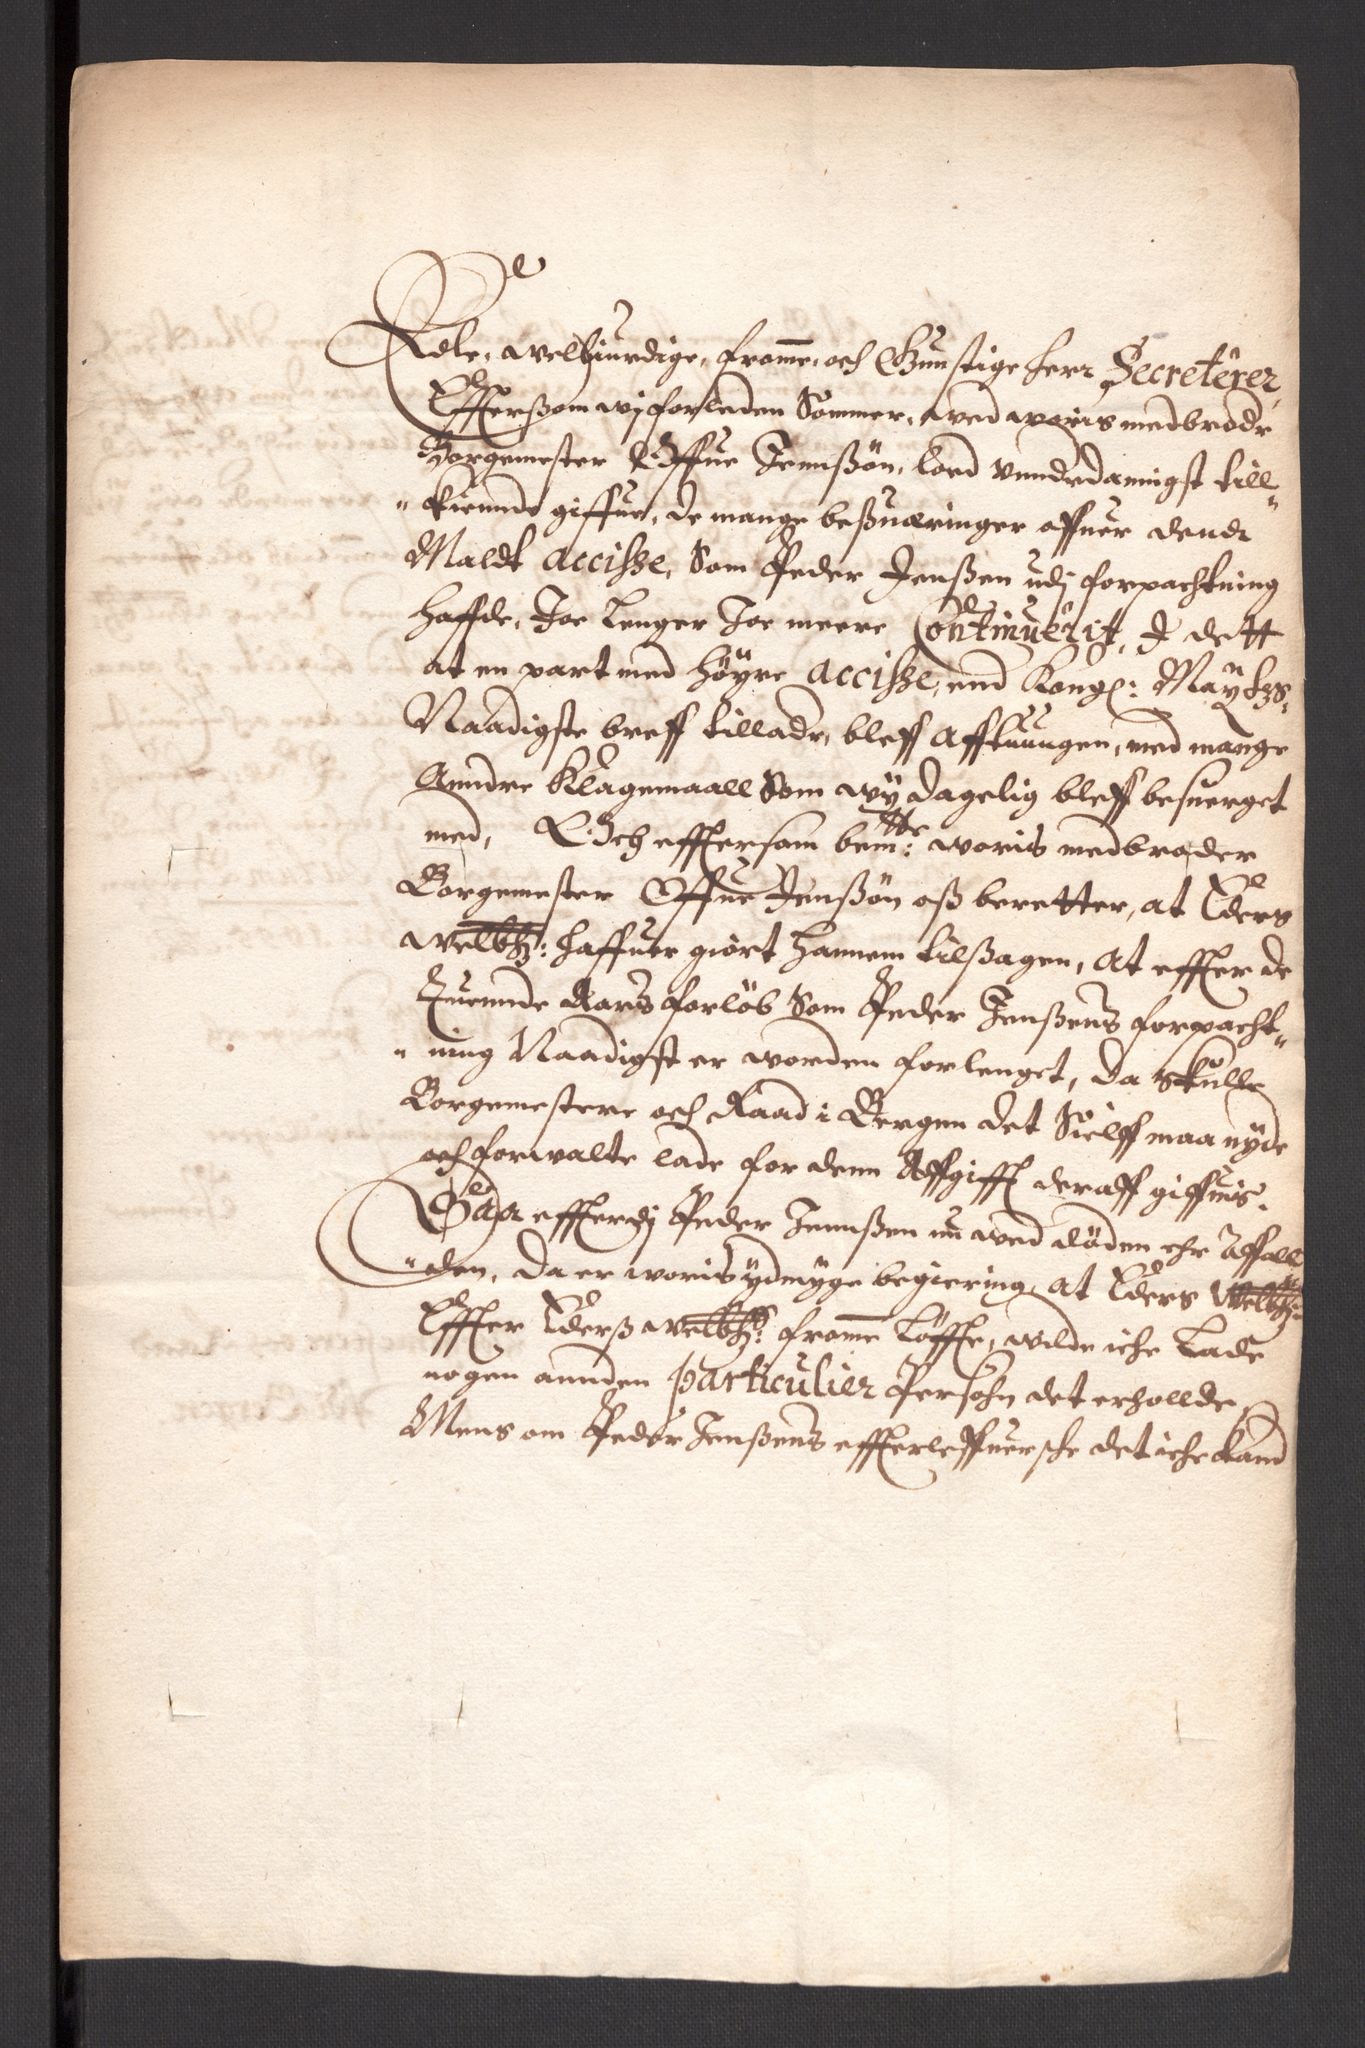 Edle, welbiurdige, fromme, och Gunstige herr Secreterer,
Effterßom wj forleden Sommer, wed woris medbrodr
Borgemester Offue Jennßøn, loed vnnderdannigst till„
„kiennde giffue, de mange beßuæringer offuer dend
Maldt accisse, Som Peder Jenßen udj forpachtning
haffde, Joe lenger Joe meere Continuerit, I dett
at en part med høyre accisse, end Kongl: Maÿtzs
Naadigste breff tillader, bleff Afftuungen, med mange
Anndre Klagemaall Som wÿ dagelig bleff besuerget
med, Och efftersom bemte: woris medbroder
Borgemester Offue Jenßøn oß beretter, at Eders
welbhd: haffuer giort hannem tilßagen, at effter de
Tuennde Aars forløb Som Peder Jenßens forpacht„
„ning Naadigst er worden forlenget, da skulle
Borgemestere och Raad i Bergen det Sielff maa nyde
och forwalte lade for denn Affgifft deraff giffuis.
Saa effterdj Peder Jennßen nu wed døden ehr affall„
„den, da er woris ydmyge begiering, at Eders Welbhd:
Effter Eders welbhds: fromme Løffte, wilde iche lade
nogen annden particulier Persohn det erhollde,
Mens om Peder Jenßens effterleffuersche det iche kand